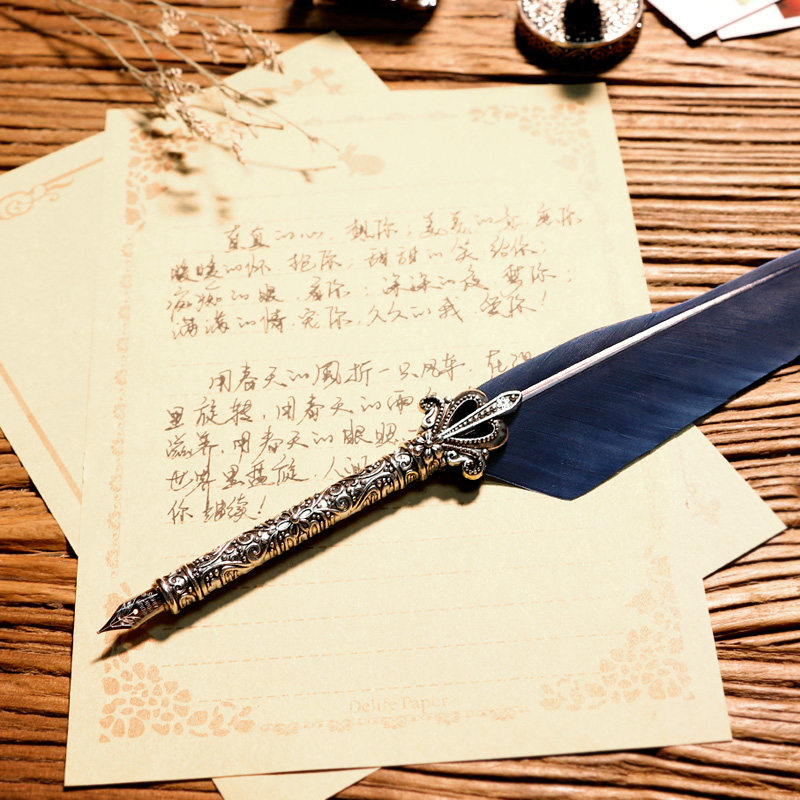 直直的心,想你;美美的意,恋你
暖暖的怀,抱你;甜甜的笑,给你;
痴痴的眼,看你;深深的夜,梦你;
满满的情,宠你,久久的我,爱你!
用春天的风折一只风车,在
里旋转,用春天的雨
滋养,用春天的眼
世界里盘旋,人
你继续!
Delite Paper